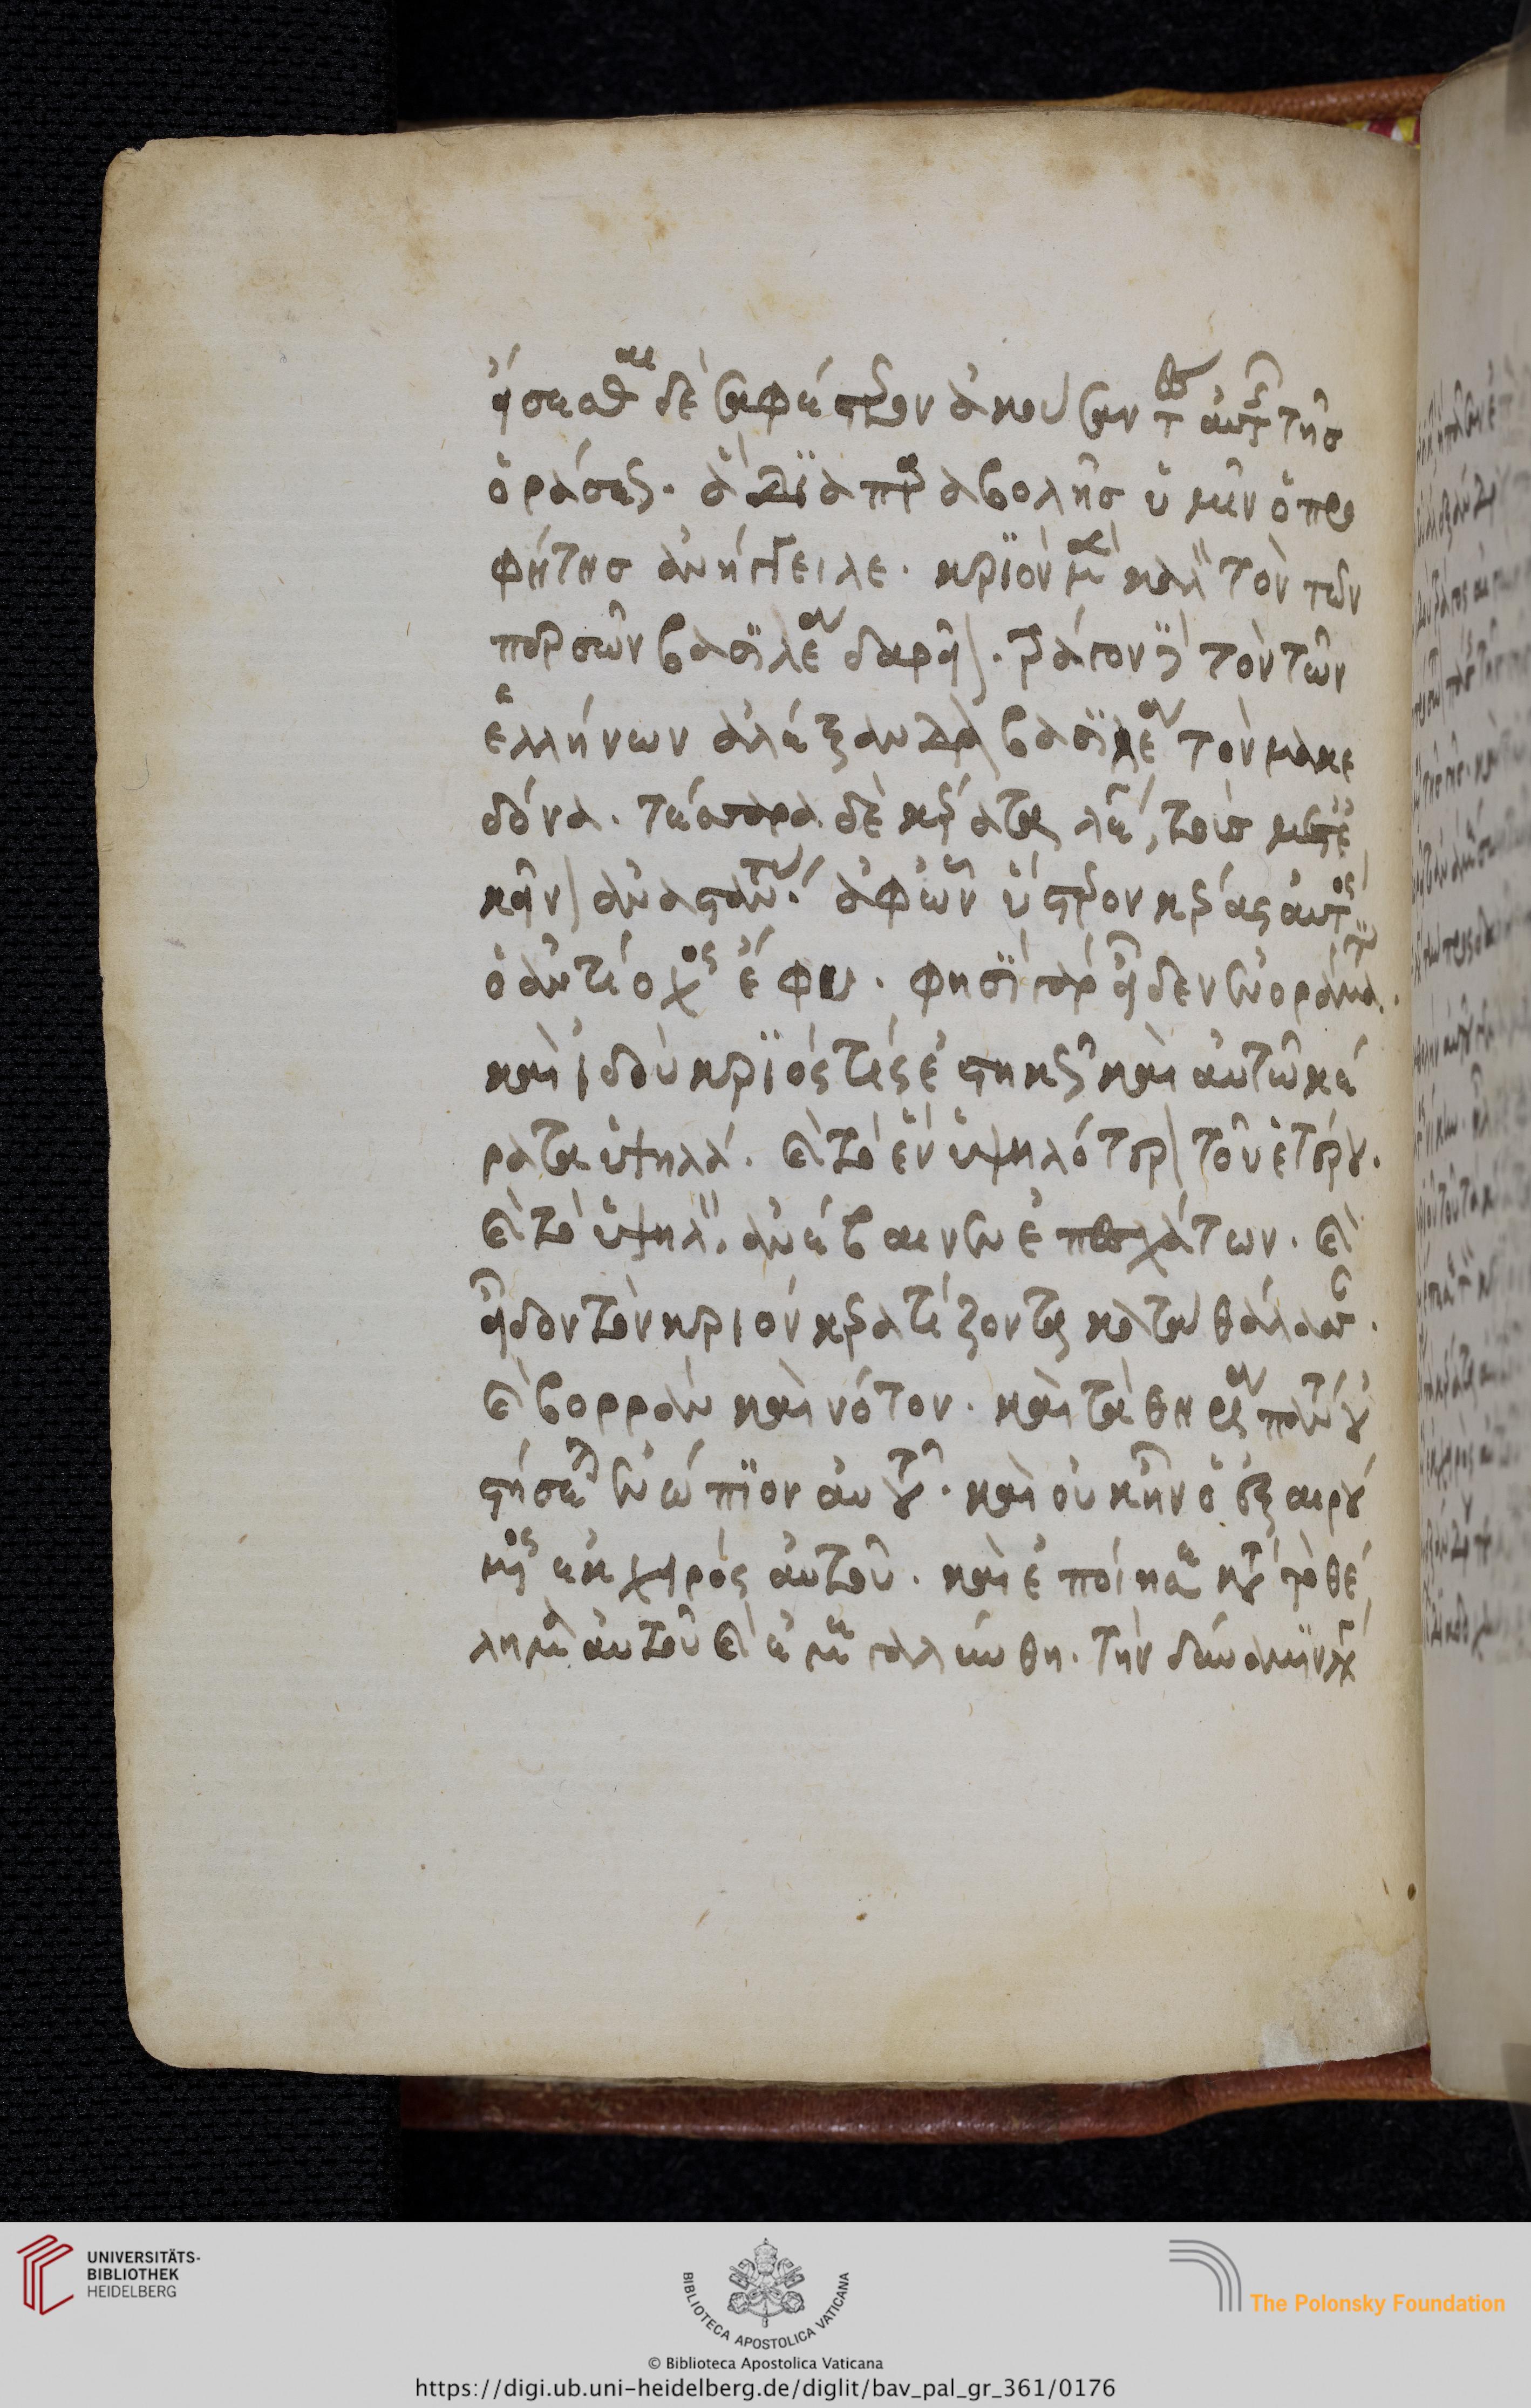 εἴσεσθαι δὲ σαφέστερον ἀκούσαντες αὐτῆς τῆς
ὁράσεως. ἃ διὰ παραβολῆς ὑμῖν ὁ προ
φήτης ἀνήγγειλε. κριὸν μὲν καλῶν τὸν τῶν
περσῶν βασιλέα δαρεῖον. τράγον δὲ τὸν τῶν
ἑλλήνων ἀλέξανδρον βασιλέα τὸν μακε
δόνα. τέσσαρα δὲ κέρατα λέγει, τοὺς μετ' ἐ
κεῖνον ἀναστάντας. ἀφ' ὧν ὕστερον κέρας αὐτὸς
ὁ ἀντίοχος ἔφυ. φησὶ γὰρ εἶδεν ἐν ὁράματι.
καὶ ἰδοὺ κριός τις ἑστηκὼς καὶ αὐτῷ κέ
ρατα ὑψηλά. καὶ τὸ ἓν ὑψηλότερον τοῦ ἑτέρου.
καὶ τὸ ὑψηλὸν ἀνέβαινεν ἐπ' ἐσχάτων. καὶ
εἶδον τὸν κριὸν κερατίζοντα κατὰ θάλασσαν.
καὶ βορρᾶν καὶ νότον. καὶ τὰ θηρία πάντα οὐ
στήσεται ἐνώπιον αὐτοῦ. καὶ οὐκ ἦν ὁ ἐξαιρού
μενος ἐκ χειρὸς αὐτοῦ. καὶ ἐποίησε κατὰ τὸ θέ
λημα αὐτοῦ καὶ ἐμεγαλύνθη. τὴν δύναμιν
UNIVERSITÄTS-
BIBLIOTHEK
HEIDELBERG
BIBLIOTECA APOSTOLICA VATICANA
The Polonsky Foundation
© Biblioteca Apostolica Vaticana
https://digi.ub.uni-heidelberg.de/diglit/bav_pal_gr_361/0176